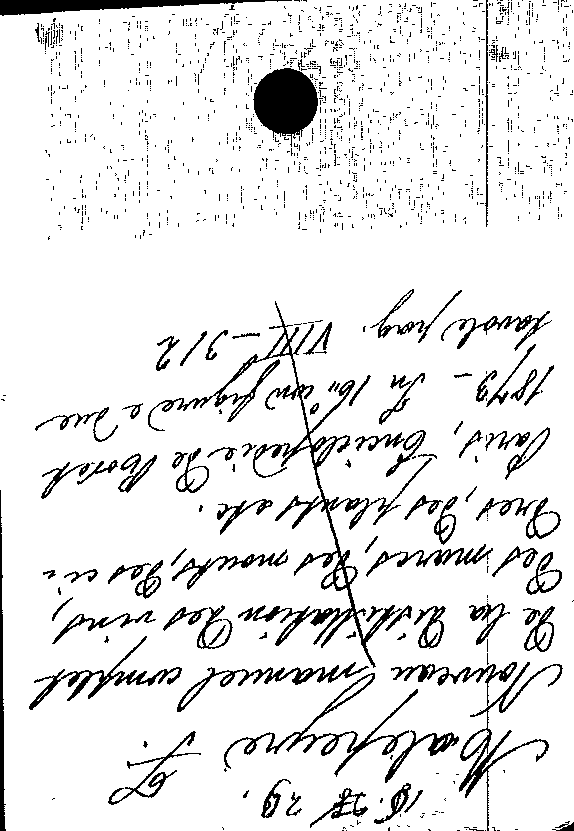 Malepeyre F.
Nouveau manuel complet
De la distillation des vins,
Des marcs, Des mouts, Des ci-
Dres, Des plants etc.
Paris, Enciclopedie De Roret
1873 - In 16° con figure e Due
tavole pag. VIII - 312